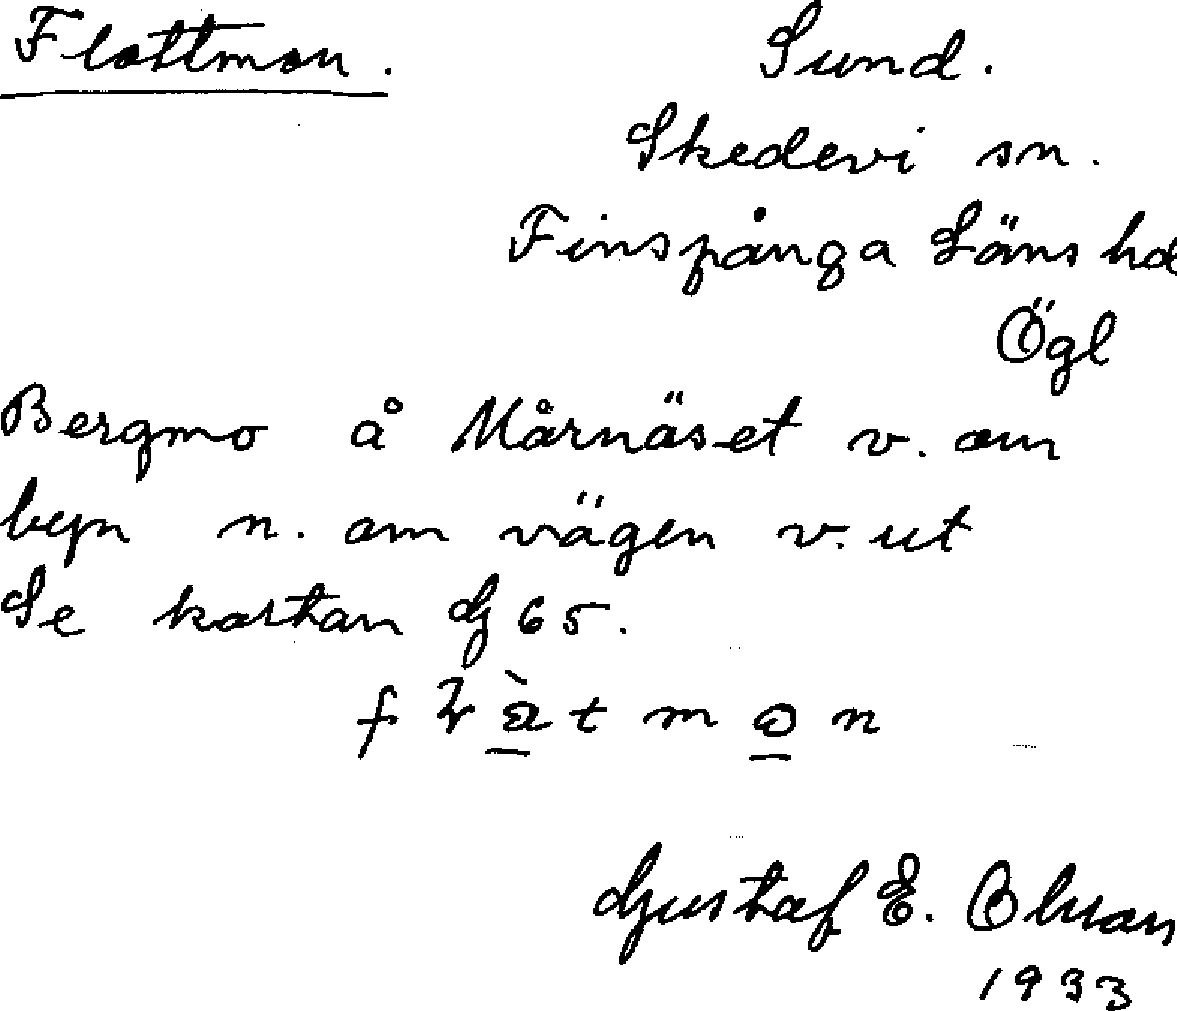 Flottmon.
Sund.
Skedevi sn.
Finspånga Läns hd
Ögl
Bergmo å Mårnäset v. om
byn n. om vägen v. ut
Se kartan G 65.
Gustaf E.
1933